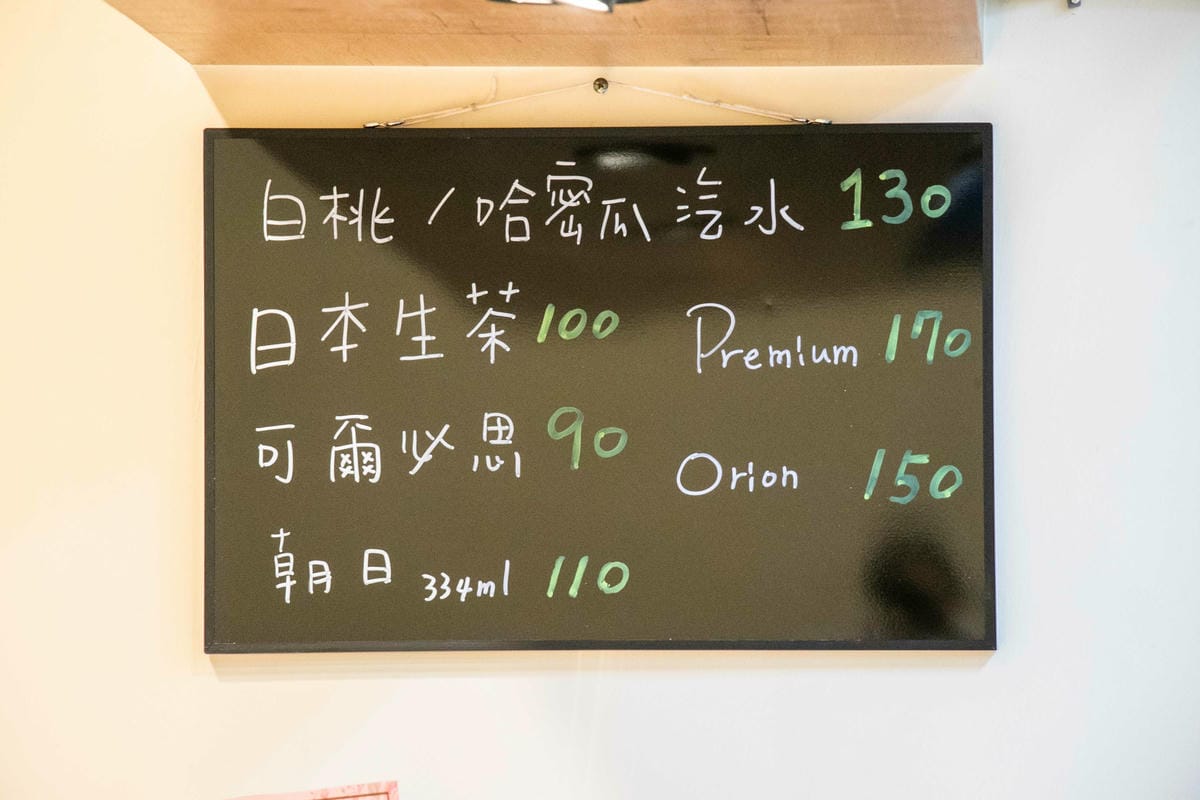 白桃/哈密瓜汽水 130
日本生茶 100 Premium 170
可爾必思 90 Orion 150
朝日 334ml 110